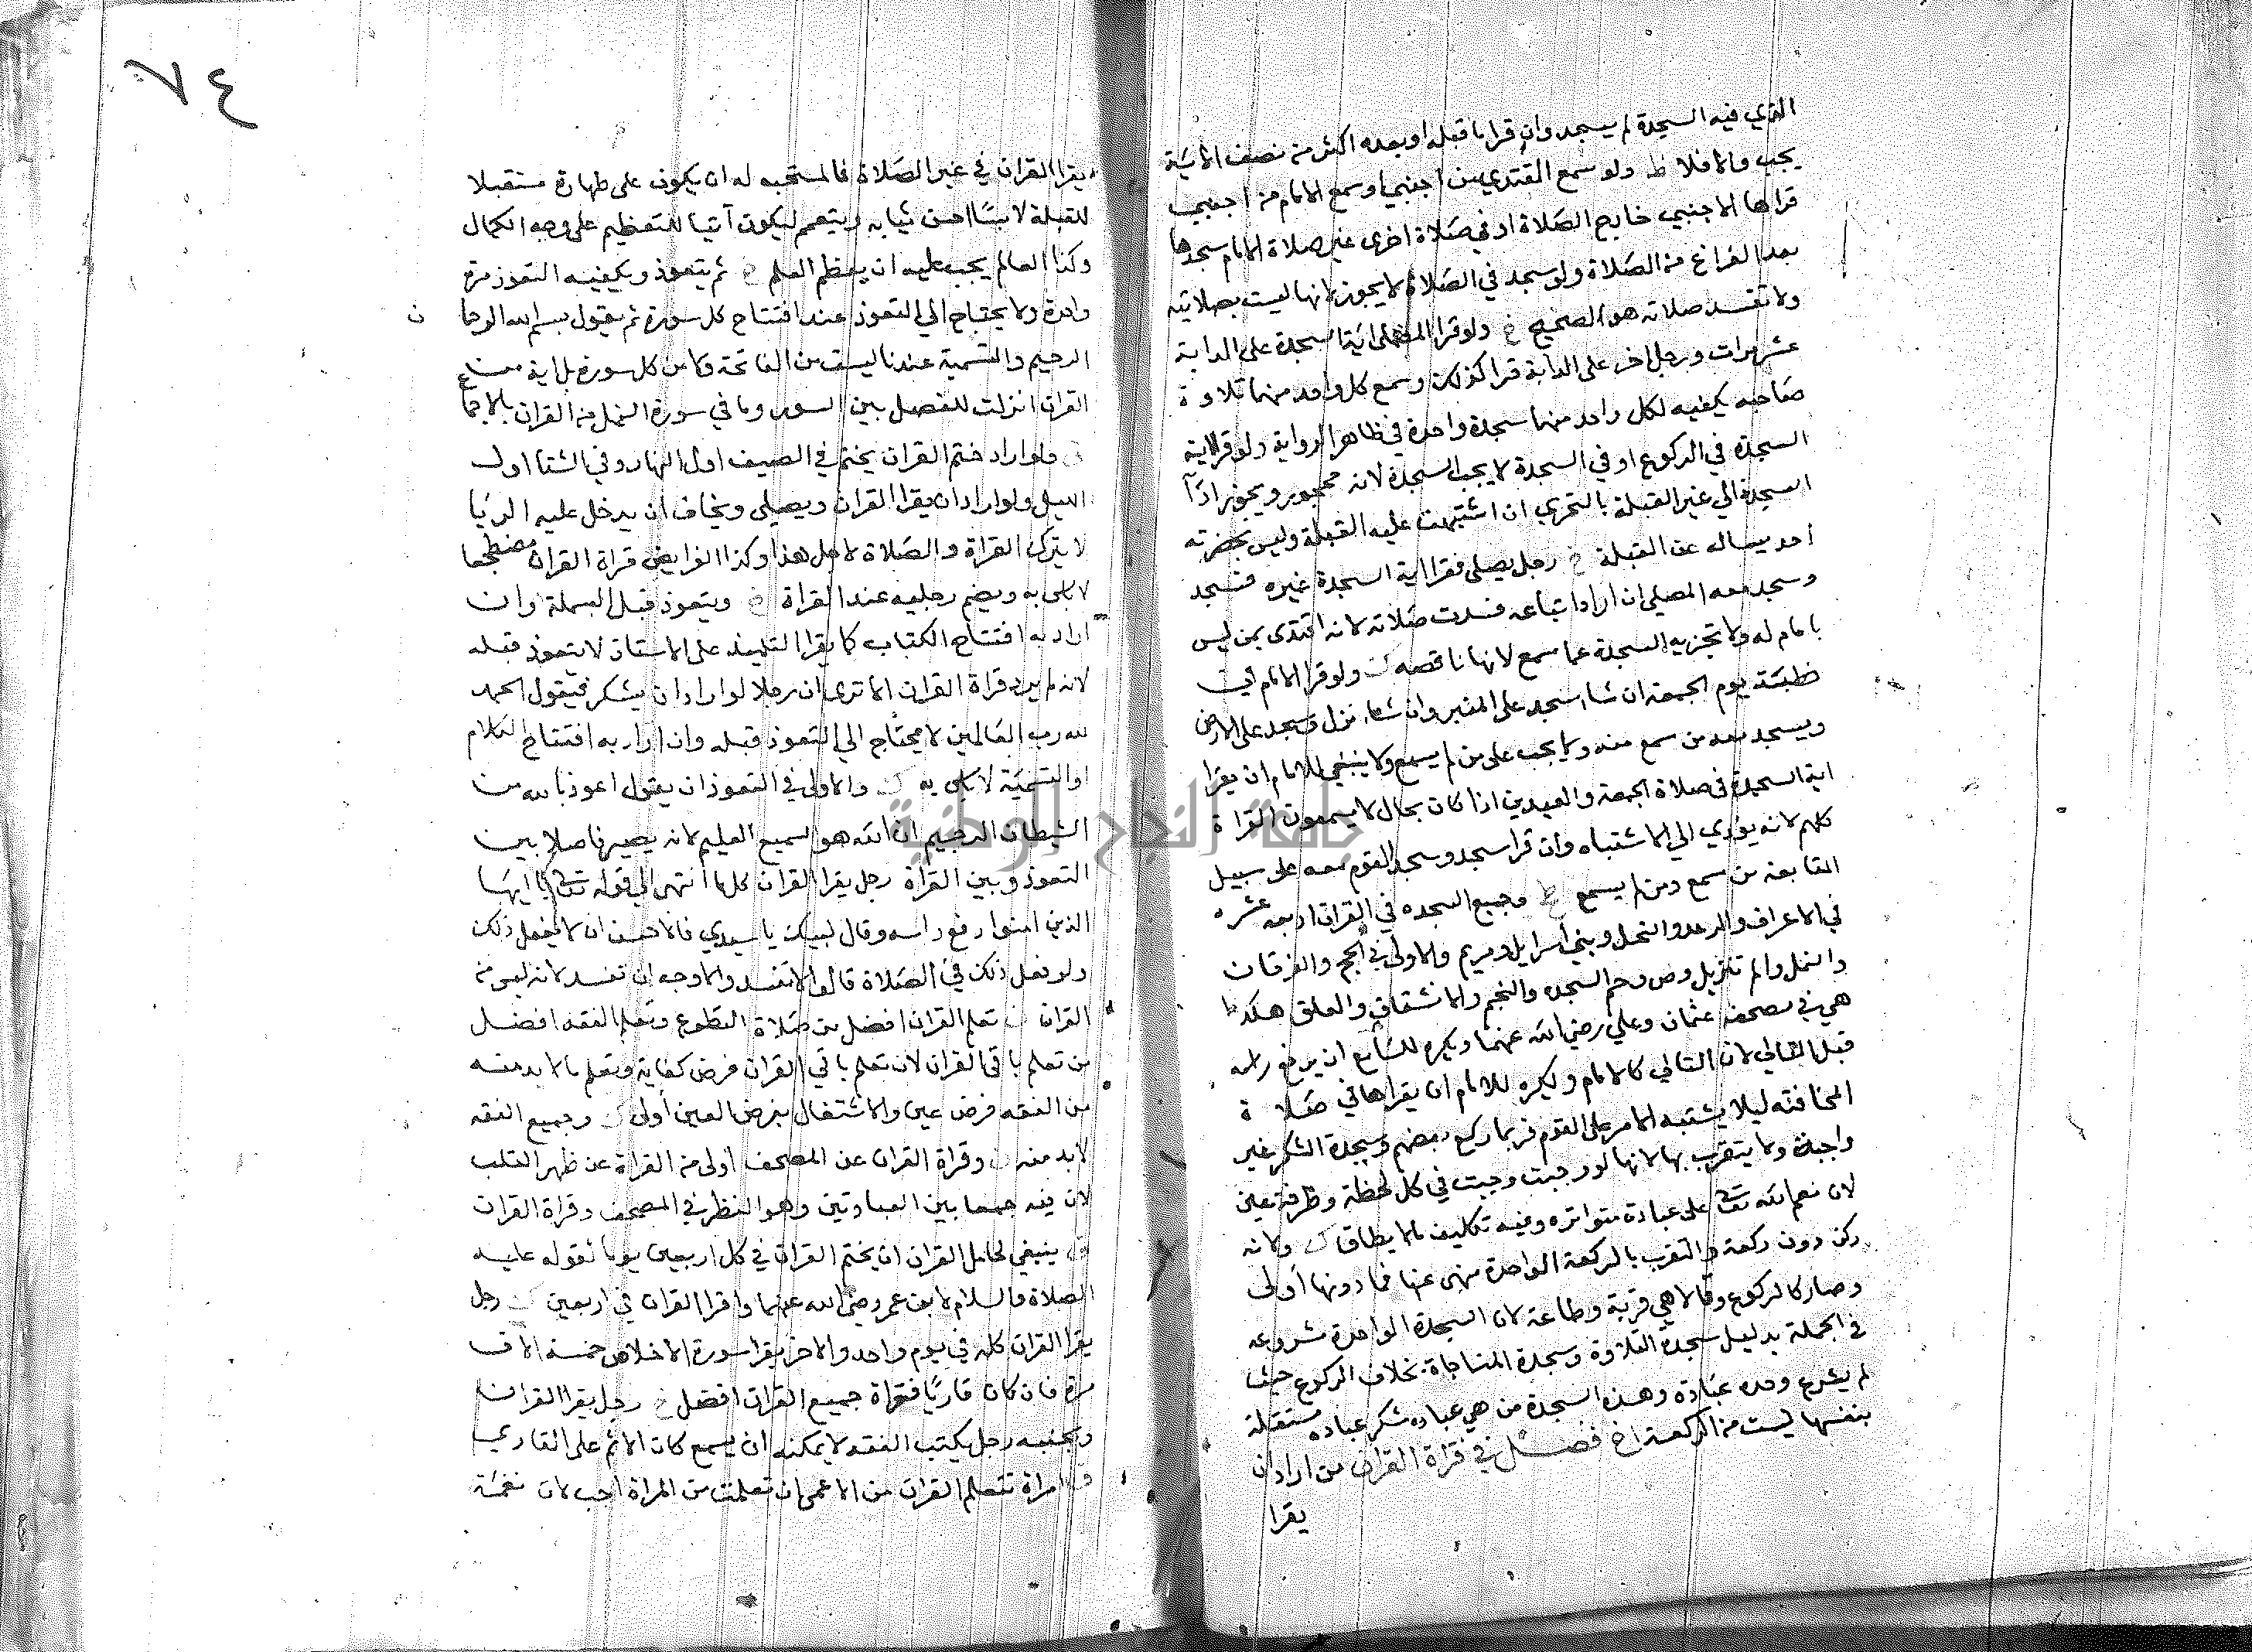 الذي فيه السجدة لم يسجد وان قرا ما قبله او بعده اكثر من نصف الاية
يجب والا فلا ط ولو سمع المقتدي من اجنبي او سمع الامام من اجنبي
قراها الاجنبي خارج الصلاة او في صلاة اخرى غير صلاة الامام سجدها
بعد الفراغ من الصلاة ولو سجد في الصلاة لا يجوز لانها ليست بصلاتيه
ولا تفسد صلاته هو الصحيح خ ولو قرا المصلى اية السجدة على الدابة
عشر مرات ورجل اخر على الدابة قرا كذلك وسمع كل واحد منهما تلاوة
صاحبه يكفيه لكل واحد منهما سجدة واحدة في ظاهر الرواية ولو قرا اية
السجدة في الركوع او في السجدة لا يجب السجدة لانه محجور ويجوز ادآ
السجدة الي غير القبلة بالتحري ان اشتبهت عليه القبلة وليس بحضرته
احد يساله عن القبلة خ رجل يصلى فقرا اية السجدة غيره فسجد
وسجد معه المصلي ان اراد اتباعه فسدت صلاته لانه اقتدى بمن ليس
بامام له ولا تجزيه السجدة عما سمع لانها ناقصه ك ولو قرا الامام في
خطبته يوم الجمعة ان شا سجد على المنبر وان شاء نزل وسجد على الارض
ويسجد معه من سمع منه ولا يجب على من لم يسمع ولا ينبغي للامام ان يقرا
اية السجدة في صلاة الجمعة والعيدين اذا كان بحال لا يسمعون القراة
كلهم لانه يؤدي الي الاشتباه وان قرا سجد وسجد القوم معه على سبيل
المتابعة من سمع ومن لم يسمع ط وجميع السجده في القران اربعة عشره
في الاعراف والرعد والنحل وبني اسرايل ومريم والاولى في الحج والفرقان
والنمل والم تنزيل وص وحم السجده والنجم والانشقاق والعلق هكذا
هي في مصحف عثمان وعلي رضي الله عنهما ويكره للسامع ان يرفع راسه
قبل التالي لان التالي كالامام ويكره للامام ان يقراها في صلاة
المخافته ليلا يشتبه الامر على القوم فربما ركع بعضهم وسجدة الشكر غير
واجبة ولا يتقرب بها لانها لو وجبت وجبت في كل لحظة وطرفة عين
لان نعم الله تع على عباده متواتره وفيه تكليف ما لا يطاق ك ولانه
ركن دون ركعة والتقرب بالركعة الواحدة منهى عنها فما دونها اولى
وصار كالركوع وقالا هي قربة وطاعة لان السجدة الواحدة مشروعه
في الجملة بدليل سجدة التلاوة وسجدة المناجاة بخلاف الركوع حيث
لم يشرع وحده عبادة وهذه السجدة من هي عباده شكر عباده مستقلة
بنفسها ليست من الركعة خ فصل في قراة القران من اراد ان
يقرا
٧٤
يقرا القران في غير الصلاة فالمستحب له ان يكون على طهارة مستقبلا
للقبلة لابسا احسن ثيابه ويتعمم ليكون آتيا للتعظيم على وجه الكمال
وكذا العالم يجب عليه ان يعظم العلم خ ثم يتعوذ ويكفيه التعوذ مرة
واحدة ولا يحتاج الي التعوذ عند افتتاح كل سورة ثم يقول بسم الله الرحمان
الرحيم والتسمية عندنا ليست من الفاتحة ولا من كل سورة بل اية من
القران انزلت للفصل بين السور وما في سورة النمل من القران بالاجماع
ن ولو اراد ختم القران يختم في الصيف اول النهار وفي الشتا اول
الليل ولو اراد ان يقرا القران ويصلى ويخاف ان يدخل عليه الريا
لا يترك القراة والصلاة لاجل هذا وكذا الفرايض قراة القران مضطجعا
لا باس به ويضم رجليه عند القراة خ ويتعوذ قبل البسملة وان
اراد به افتتاح الكتاب كما يقرا التلميذ على الاستاذ لا يتعوذ قبله
لانه لم يرد قراة القران الا ترى ان رجلا لو اراد ان يشكر فيقول الحمد
لله رب العالمين لا يحتاج الي التعوذ قبله وان اراد به افتتاح الكلام
او التسمية لا باس به ك والاولى في التعوذ ان يقول اعوذ بالله من
الشيطان الرجيم ان الله هو السميع العليم لانه يصير فاصلا بين
التعوذ وبين القراة رجل يقرا القران كلما انتهى الي قوله تع يا ايها
الذين امنوا رفع راسه وقال لبيك يا سيدي فالاحسن ان لا يفعل ذلك
ولو فعل ذلك في الصلاة قالوا لا تفسد والاوجه ان تفسد لانه ليس من
القران ن تعلم القران افضل من صلاة التطوع وتعلم الفقه افضل
من تعلم باقي القران لان تعلم باقي القران فرض كفاية وتعلم ما لا بد منه
من الفقه فرض عين والاشتغال بفرض العين اولى ك وجميع الفقه
لا بد منه ن وقراة القران عن المصحف اولى من القراة عن ظهر القلب
لان فيه جمعا بين العبادتين وهو النظر في المصحف وقراة القران
ن ينبغي لحامل القران ان يختم القران في كل اربعين يوما لقوله عليه
الصلاة والسلام لابن عمر رضي الله عنهما واقرا القران في اربعين ك رجل
يقرا القران كله في يوم واحد والاخر يقرا سورة الاخلاص خمسة الاف
مرة فان كان قاريا فقراة جميع القران افضل خ رجل يقرا القران
وبجنبه رجل يكتب الفقه لا يمكنه ان يسمع كان الاثم على القاري
ن امراة تتعلم القران من الاعمى ان تعلمت من المراة احب لان نغمتة
جامعة النجاح الوطنية